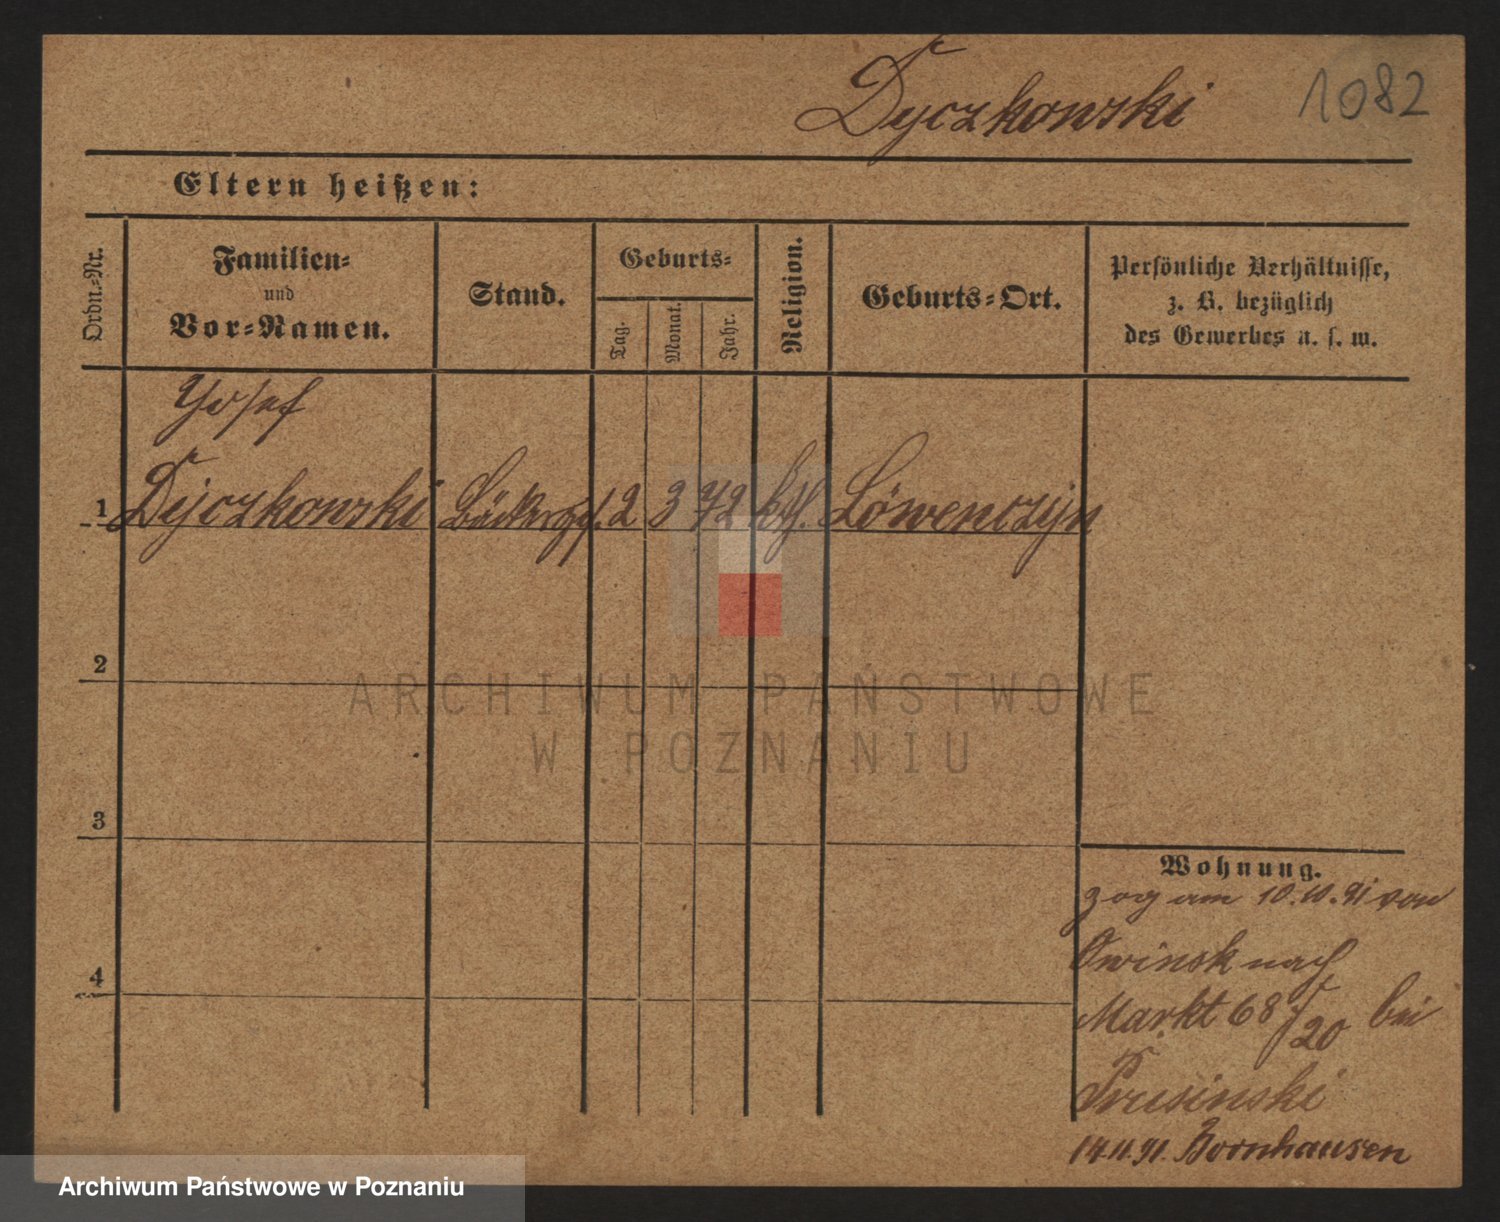 Dyczkowski 1082
Eltern heißen:
Ordn.-Nr.
Familien-
und
Vor-Namen.
Stand.
Geburts-
Tag.
Monat.
Jahr.
Religion.
Geburts-Ort.
Persönliche Verhältnisse,
z. B. bezüglich
des Gewerbes u. s. w.
Josef
1 Dyczkowski Bäckergs. 2 3 72 kth. Löwenczyn
2
ARCHIWUM PAŃSTWOWE
W POZNANIU
3
Wohnung.
zog am 10.10.91 von
Owinsk nach
Markt 68/20 bei
Prusinski
4
14.11.91. Bornhausen
Archiwum Państwowe w Poznaniu